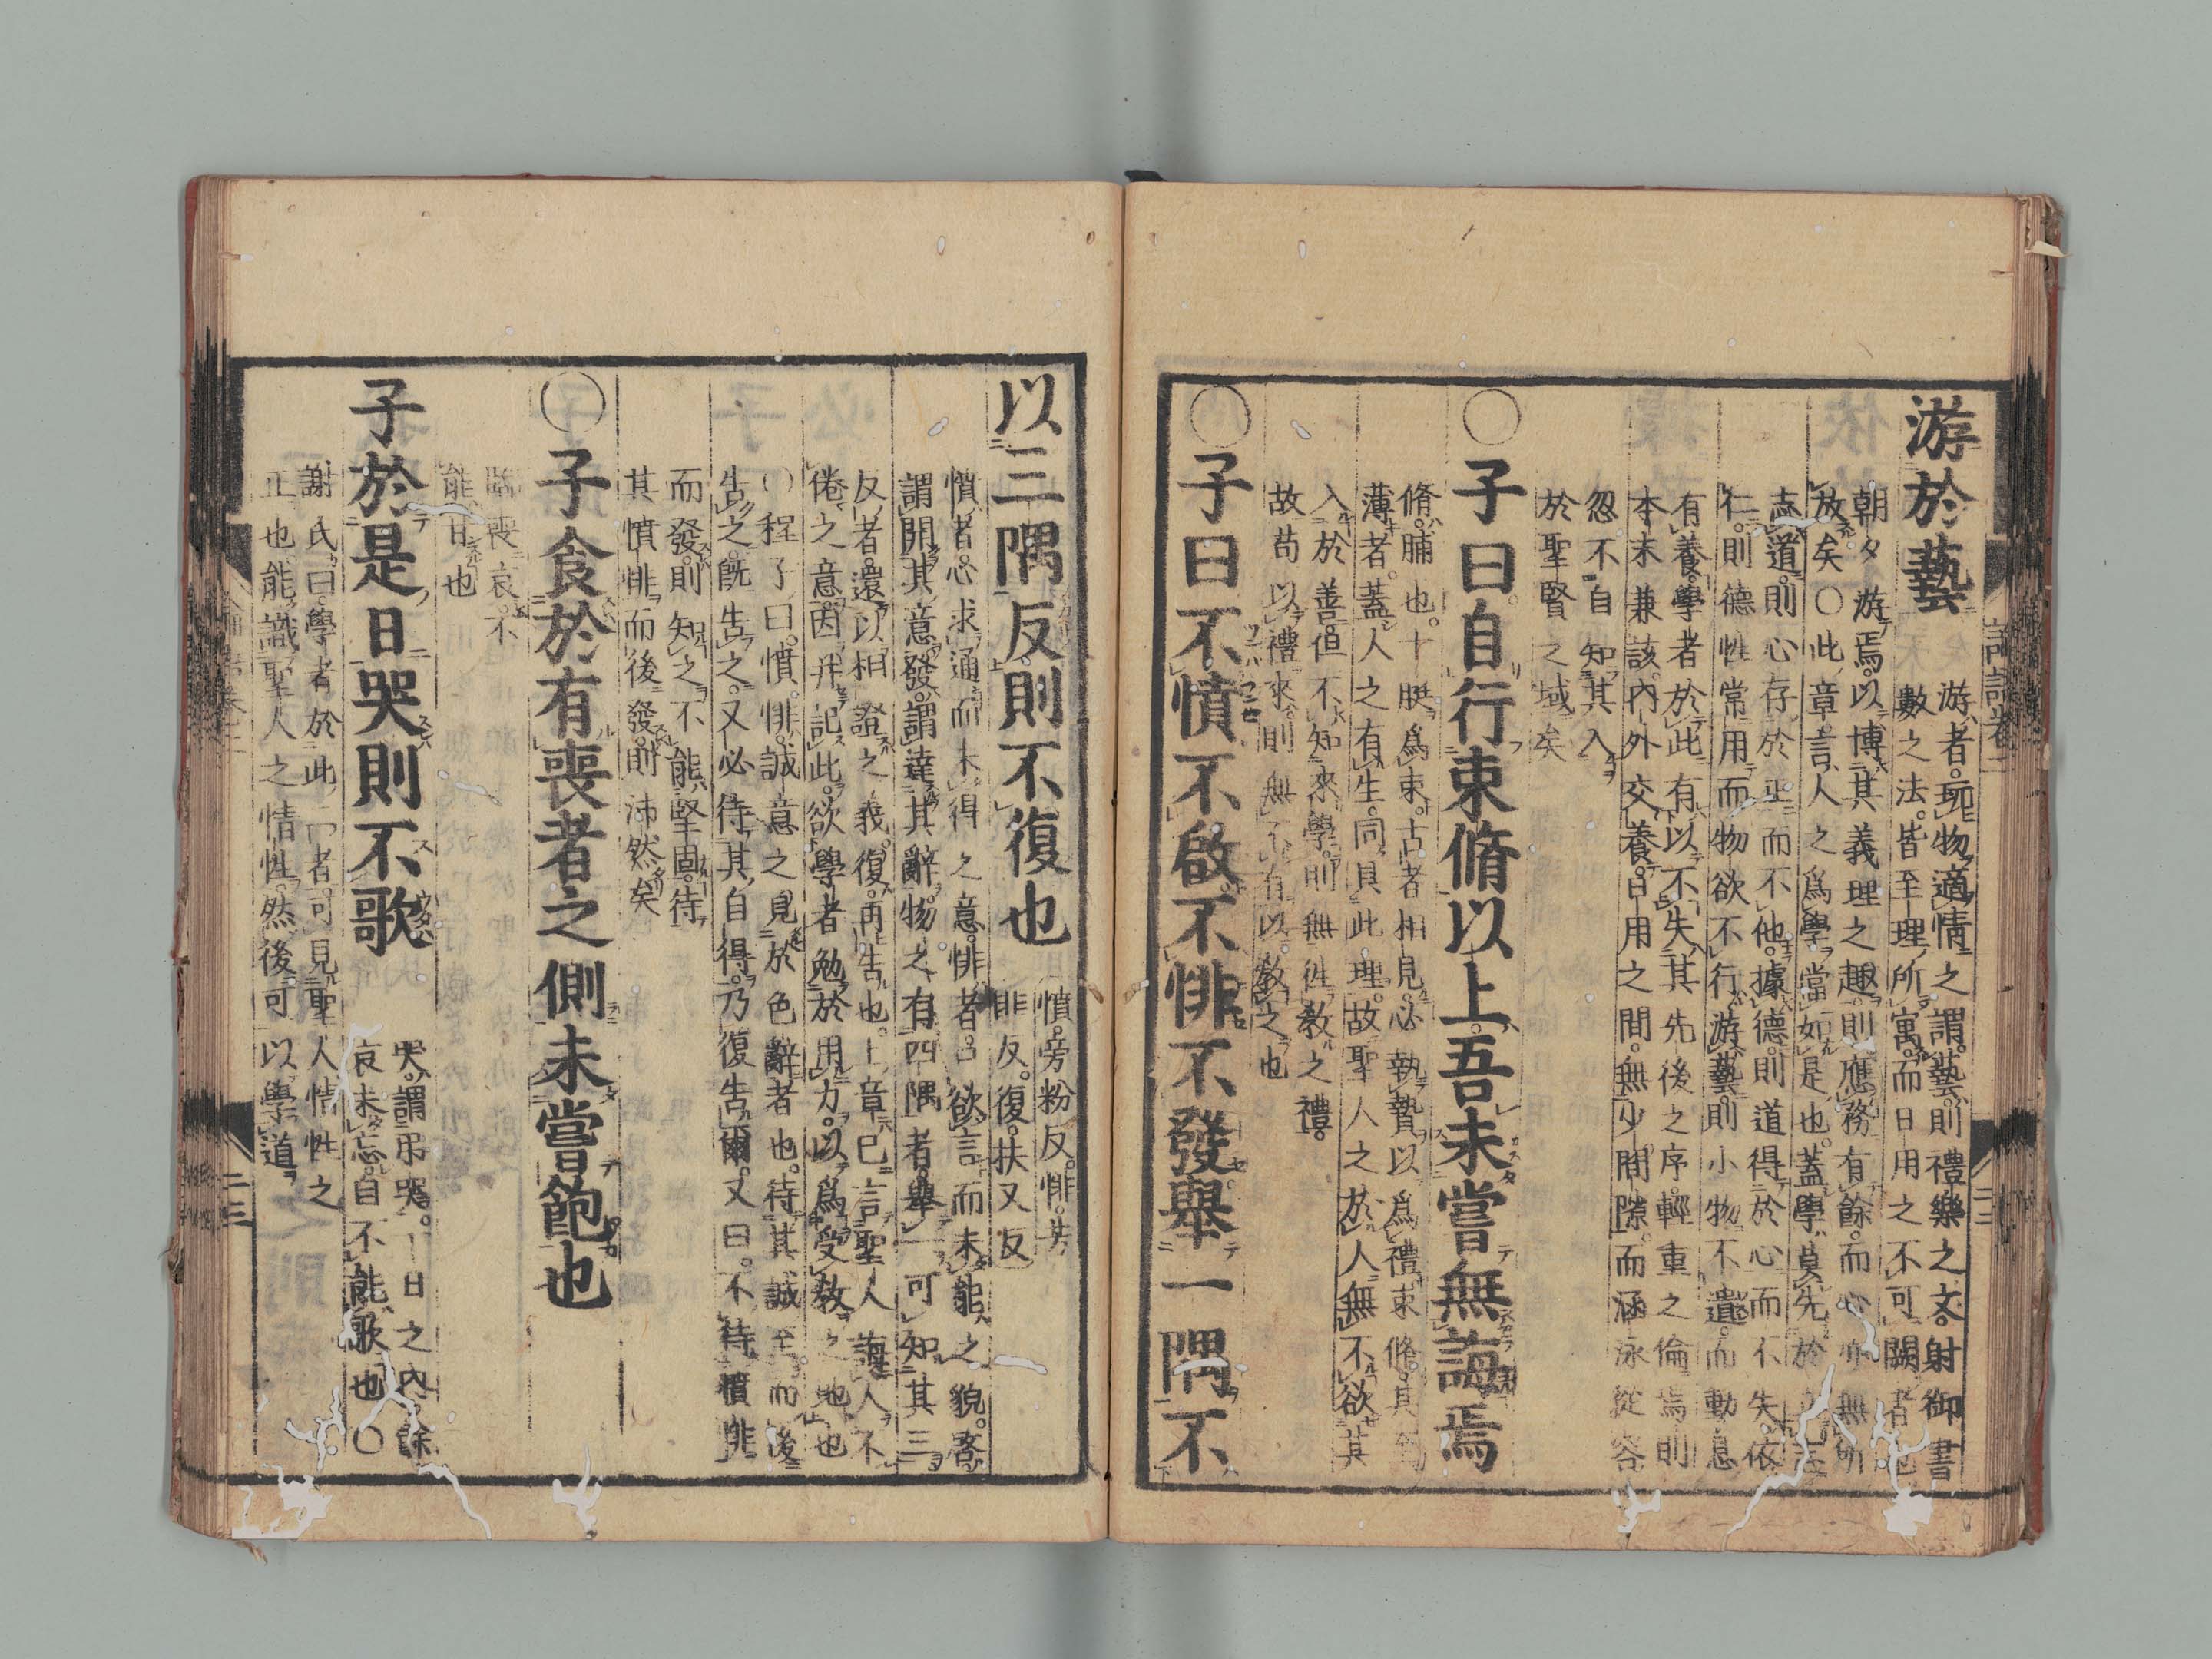 游於藝
游者玩物適情之謂藝則禮樂之文射御書
數之法皆至理所寓而日用之不可闕者也
朝夕游焉以博其義理之趣則應務有餘而心亦無所
放矣〇此章言人之爲學當如是也蓋學莫先於立
志道則心存於正而不他據德則道得於心而不失依
仁則德性常用而物欲不行游藝則小物不遺而動息
有養學者於此有以不失其先後之序輕重之倫焉則
本末兼該内外交養日用之間無少間隙而涵泳從容
忽不自知其入
於聖賢之域矣
〇子曰自行束脩以上吾未嘗無誨焉
脩脯也十脡爲束古者相見必執贄以爲禮束脩其至
薄者蓋人之有生同具此理故聖人之於人無不欲其
入於善但不知來學則無徃敎之禮
故苟以禮來則無不有以敎之也
〇子曰不憤不啟不悱不發舉一隅不
以三隅反則不復也
憤旁粉反悱芳
匪反復扶又反
憤者心求通而未得之意悱者口欲言而未能之貌啓
謂開其意發謂達其辭物之有四隅者舉一可知其三
反者還以相證之義復再告也上章已言聖人誨人不
倦之意因幷記此欲學者勉於用力以爲受敎之地也
〇程子曰憤悱誠意之見於色辭者也待其誠至而後
告之旣告之又必待其自得乃復告爾又曰不待憤悱
而發則知之不能堅固待
其憤悱而後發則沛然矣
〇子食於有喪者之側未嘗飽也
臨喪哀不
能甘也
子於是日哭則不歌
哭謂弔哭一日之内餘
哀未忘自不能歌也〇
謝氏曰學者於此二者可見聖人情性之
正也能識聖人之情性然後可以學道